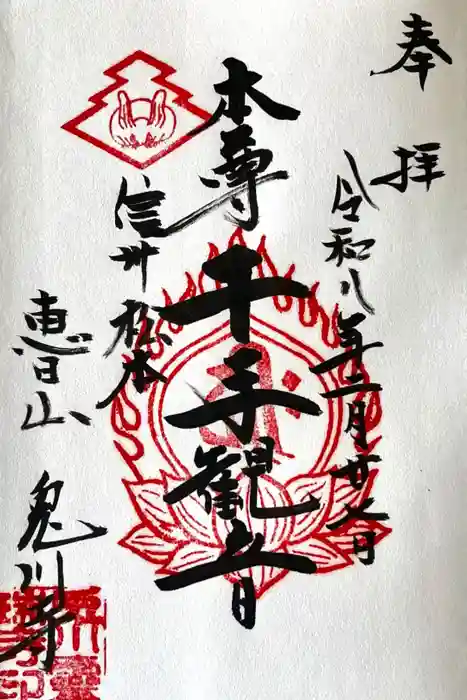 奉拝
令和八年二月廿七日
本尊 千手観音
信州松本
恵日山
兎川寺